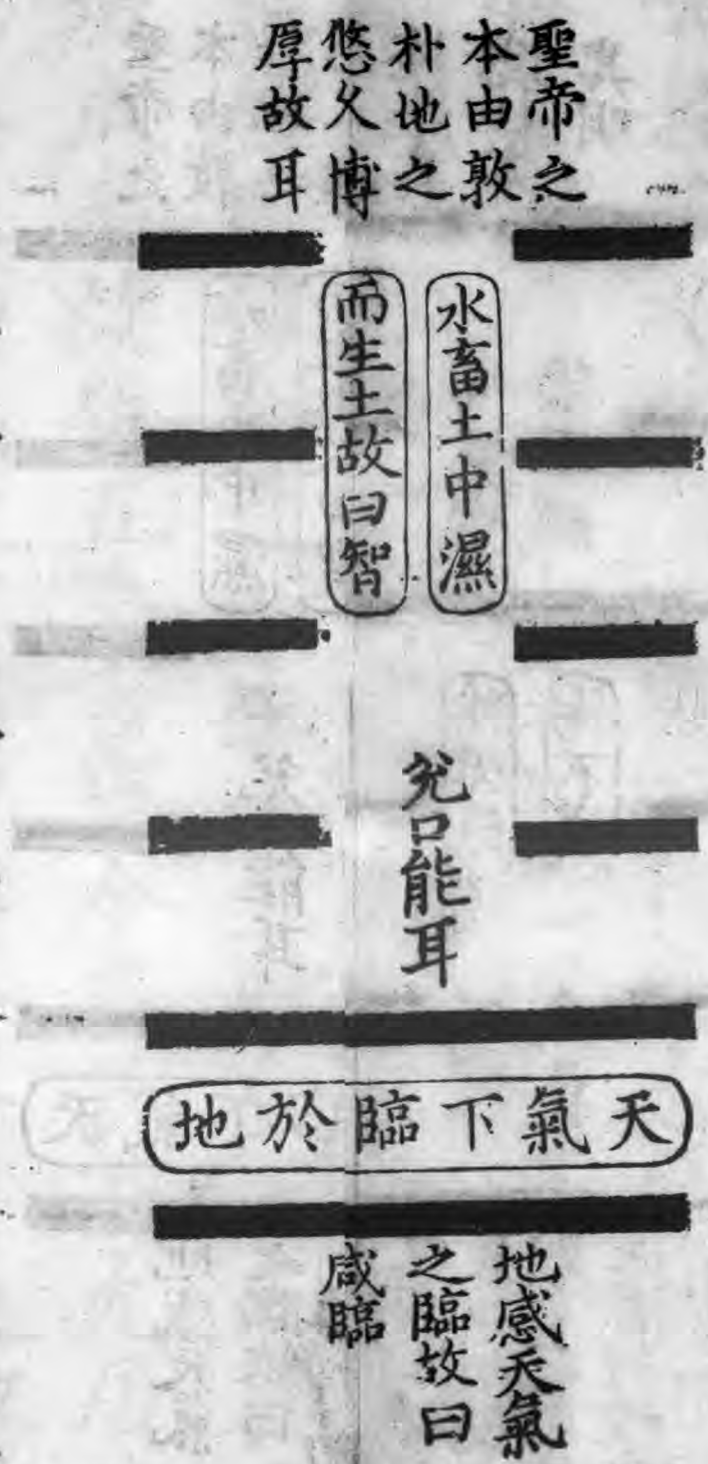 聖帝之
本由敦
朴地之
悠久博
厚故耳
水畜土中濕
而生土故曰智
兊口能耳
天氣下臨於地
地感天氣
之臨故曰
咸臨